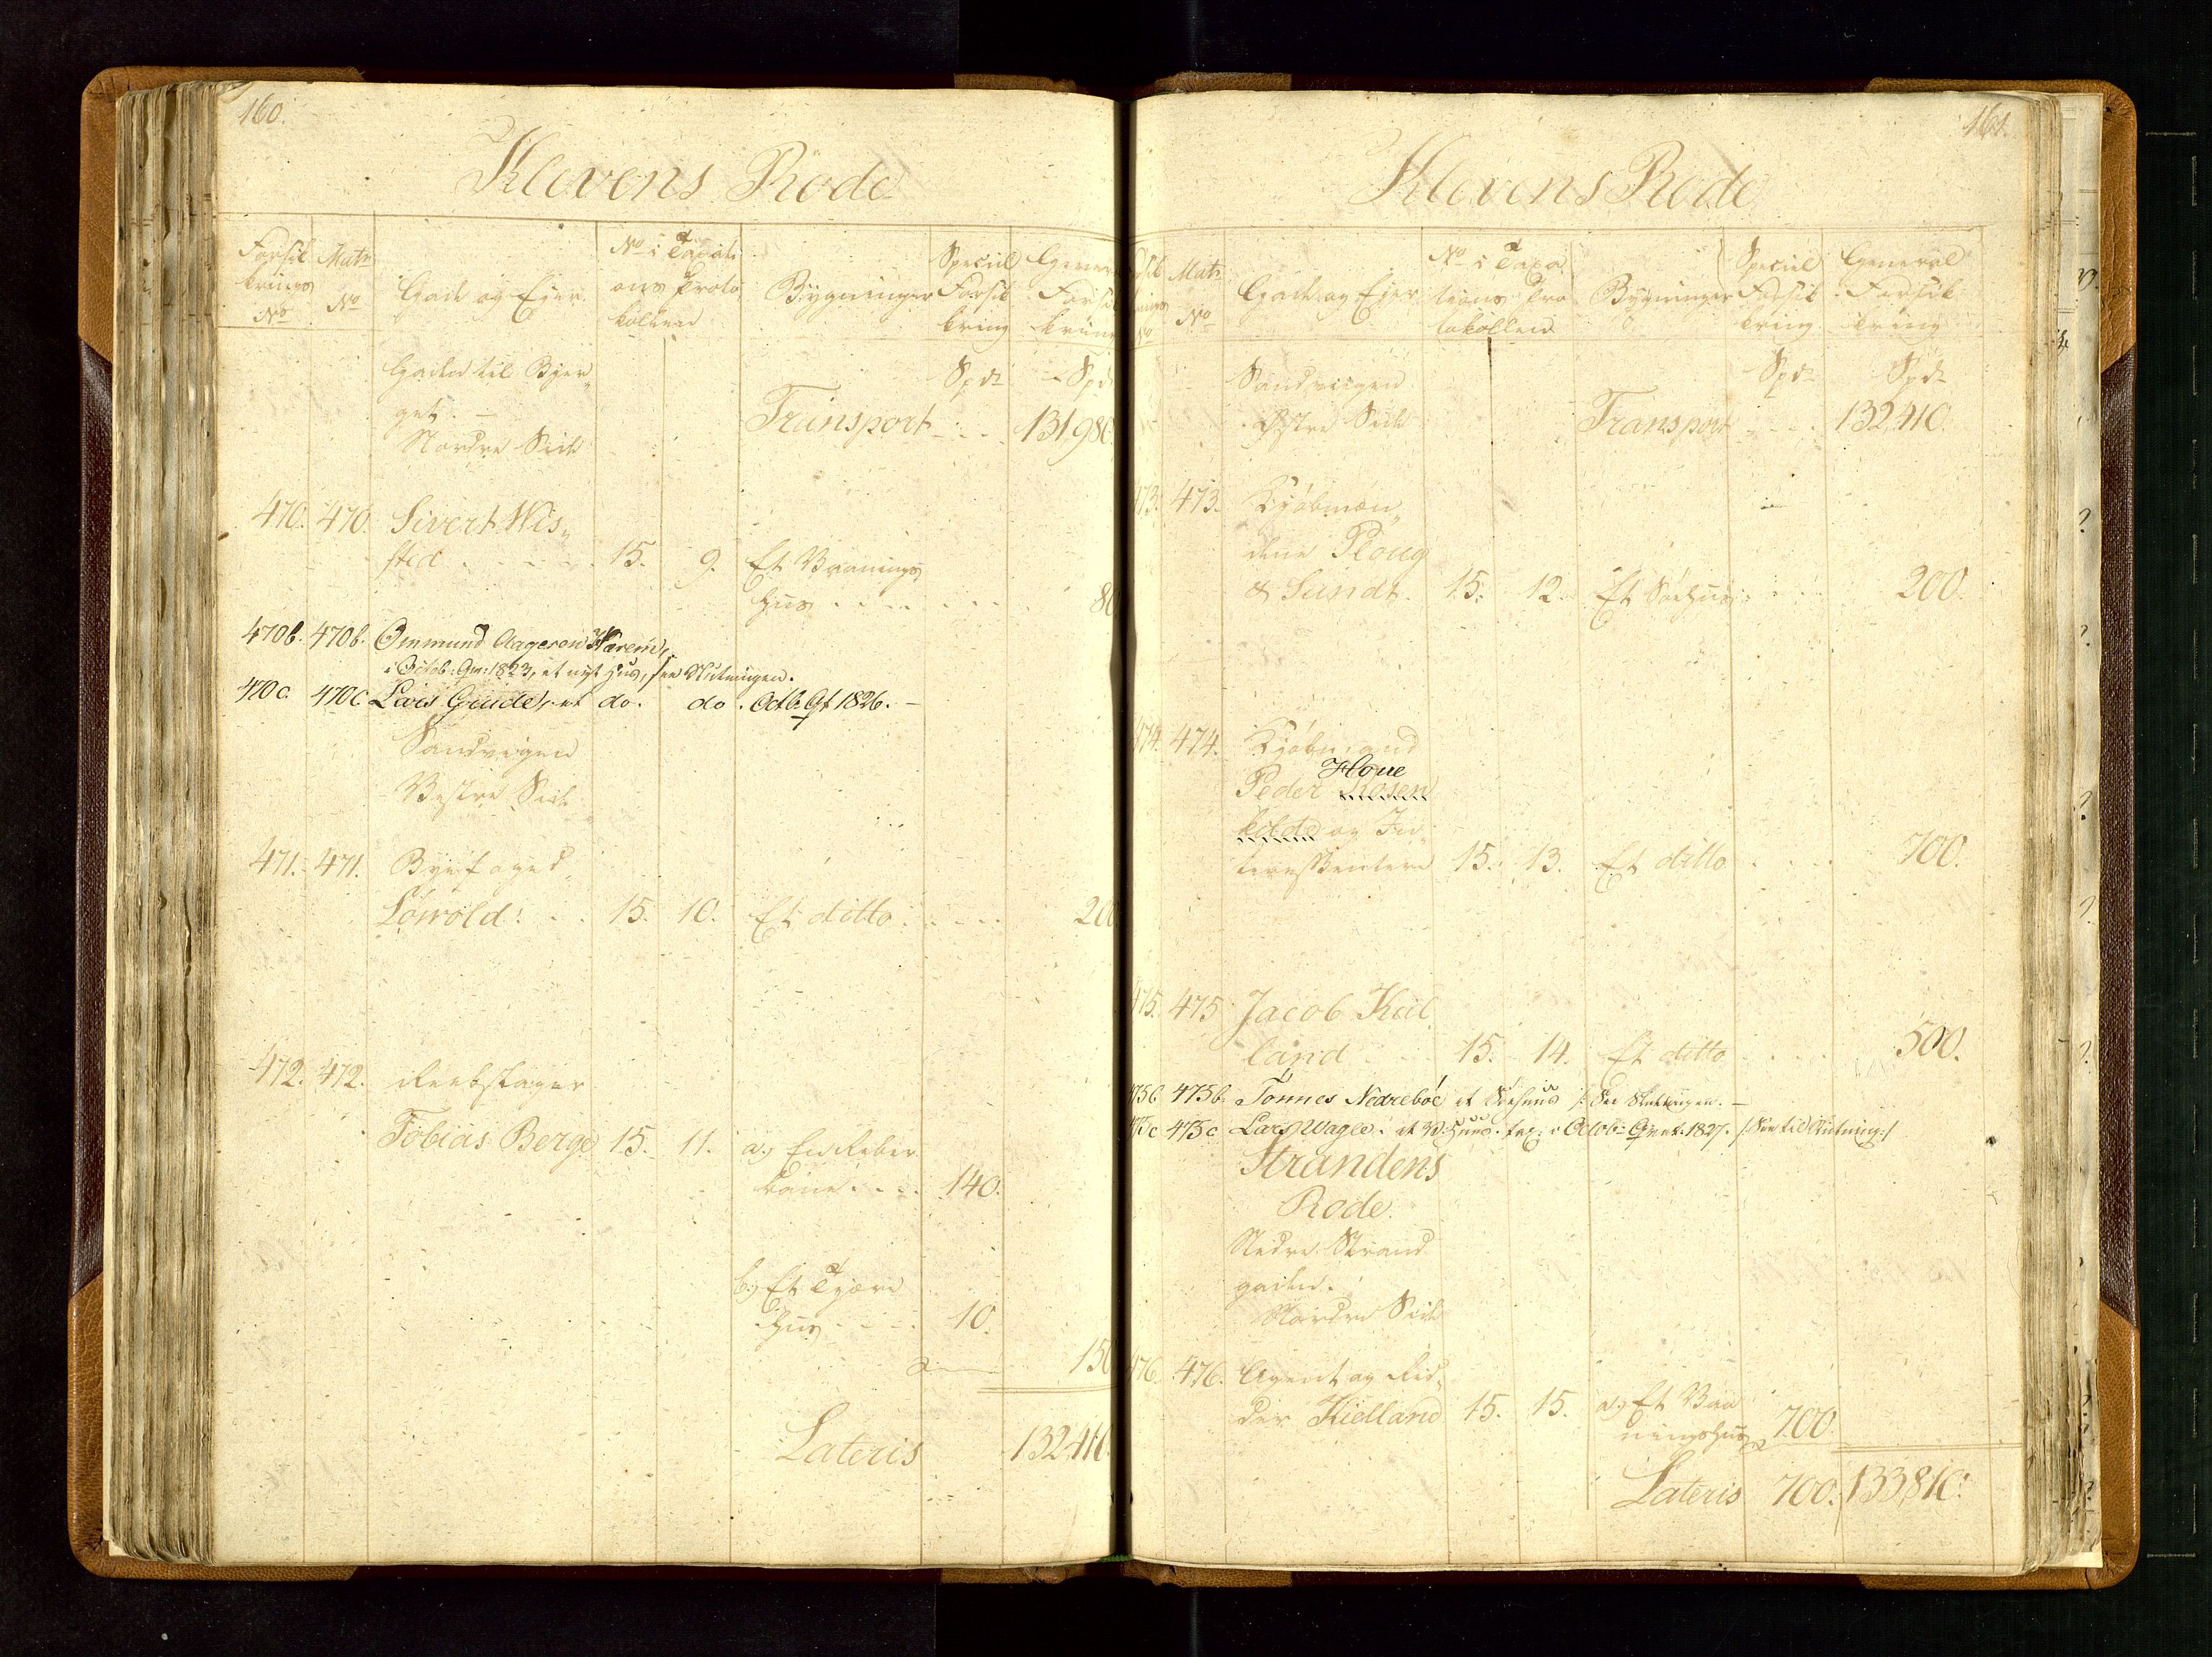 160.
Klevens Rode
Forsik
krings
No
Matr
No
Gade og Ejer.
No i Taxati
ons Proto
kollen
Bygninger
Speciel
Forsik
kring
General
Forsik
kring
Gaden til Bjer„
get. –
Nordre Side
Spdr
Spdr
Transport
131,980.
470. 470. Sivert Wis„
sted . . . . . 15. 9. Et Vaanings
Huus . . . . . . . 80
470b. 470b. Ommund Aagesen Warem,
i Octob: Qv: 1823, et nyt Huus, see Slutningen.
470c. 470c. Lars Gaude, et do. do. Octb. Qt 1826. –
Sandvigen
Vestre Side
471. 471. Byefoged
Löwold: . . 15. 10. Et ditto . . . . . 200
472. 472. Reebslager
Tobias Berge 15. 11. a.) En Reber
bane . . . . 140.
b.) Et Tjære
Huus . . . . 10.
150
Lateris 132,410.
161.
Klevens Rode
Matr
No
Gade og Ejer
No i Taxa
tions Pro
tokollen
Bygninger
Speciel
Forsik
kring
General
Forsik
kring
Sandviigen
Østre Side
Spdr
Spdr
Transport
132,410.
473. 473. Kjöbmæn„
dene Ploug
& Sundt. 15. 12. Et Söehuus . . . . 200.
474. 474. Kjöbmand
Houe
Peder Rosen
kilde og In
teressentere 15. 13. Et ditto . . . . 700.
475. 475 Jacob Kiel
land . . . 15. 14. Et ditto . . . . 500.
475b 475b. Tönnes Nedreböe et Söehuus /: See Slutningen. –
475c 475c Lars Wagle: et V: Huus. tax: i Octob: Qvart. 1827. /: See til Slutning :/
Strandens
Rode.
Nedre Strand
gaden.
Nordre Side
476. 476. Agent og Rid„
der Kielland 15. 15. a.) Et Vaa
ningshuus 700.
Lateris 700. 133,810.